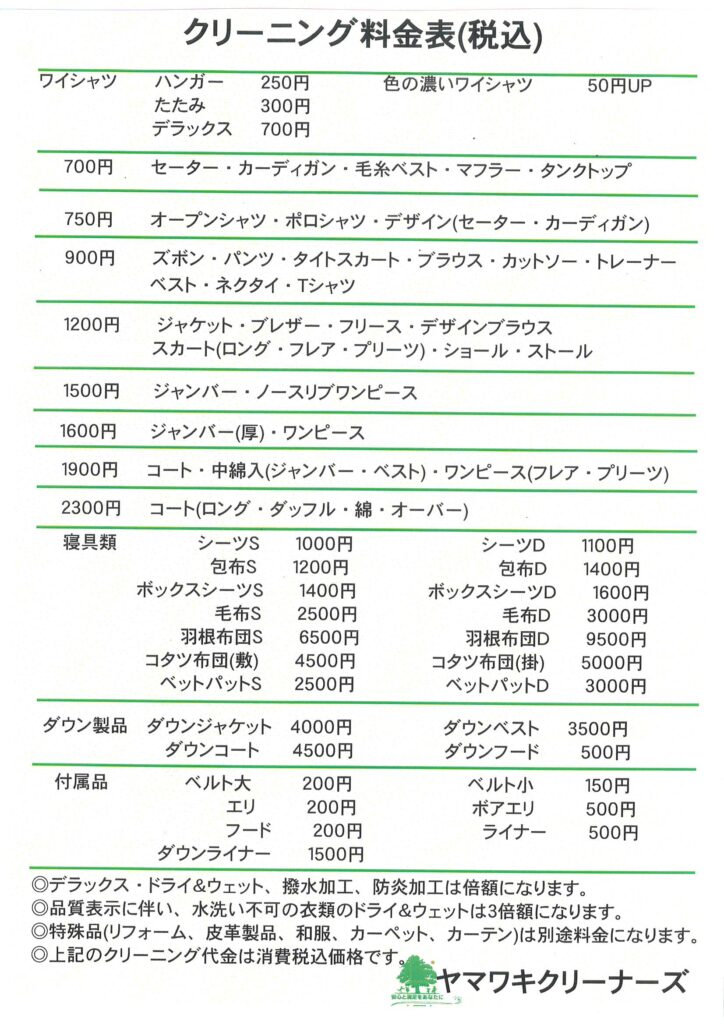 クリーニング料金表(税込)
ワイシャツ ハンガー 250円 色の濃いワイシャツ 50円UP
たたみ 300円
デラックス 700円
700円 セーター・カーディガン・毛糸ベスト・マフラー・タンクトップ
750円 オープンシャツ・ポロシャツ・デザイン(セーター・カーディガン)
900円 ズボン・パンツ・タイトスカート・ブラウス・カットソー・トレーナー
ベスト・ネクタイ・Tシャツ
1200円 ジャケット・ブレザー・フリース・デザインブラウス
スカート(ロング・フレア・プリーツ)・ショール・ストール
1500円 ジャンバー・ノースリブワンピース
1600円 ジャンバー(厚)・ワンピース
1900円 コート・中綿入(ジャンバー・ベスト)・ワンピース(フレア・プリーツ)
2300円 コート(ロング・ダッフル・綿・オーバー)
寝具類 シーツS 1000円 シーツD 1100円
包布S 1200円 包布D 1400円
ボックスシーツS 1400円 ボックスシーツD 1600円
毛布S 2500円 毛布D 3000円
羽根布団S 6500円 羽根布団D 9500円
コタツ布団(敷) 4500円 コタツ布団(掛) 5000円
ベットパットS 2500円 ベットパットD 3000円
ダウン製品 ダウンジャケット 4000円 ダウンベスト 3500円
ダウンコート 4500円 ダウンフード 500円
付属品 ベルト大 200円 ベルト小 150円
エリ 200円 ボアエリ 500円
フード 200円 ライナー 500円
ダウンライナー 1500円
◎デラックス・ドライ&ウェット、撥水加工、防炎加工は倍額になります。
◎品質表示に伴い、水洗い不可の衣類のドライ&ウェットは3倍額になります。
◎特殊品(リフォーム、皮革製品、和服、カーペット、カーテン)は別途料金になります。
◎上記のクリーニング代金は消費税込価格です。
安心と満足をあなたに
ヤマワキクリーナーズ